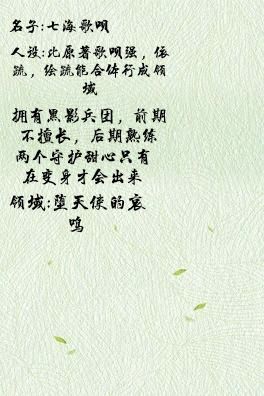 名子:七海歌呗
人设:比原著歌呗强，依
疏，绘疏能合体行成领
域
拥有黑影兵团，前期
不擅长，后期熟练
两个守护甜心只有
在变身才会出来
领域:堕天使的哀
鸣